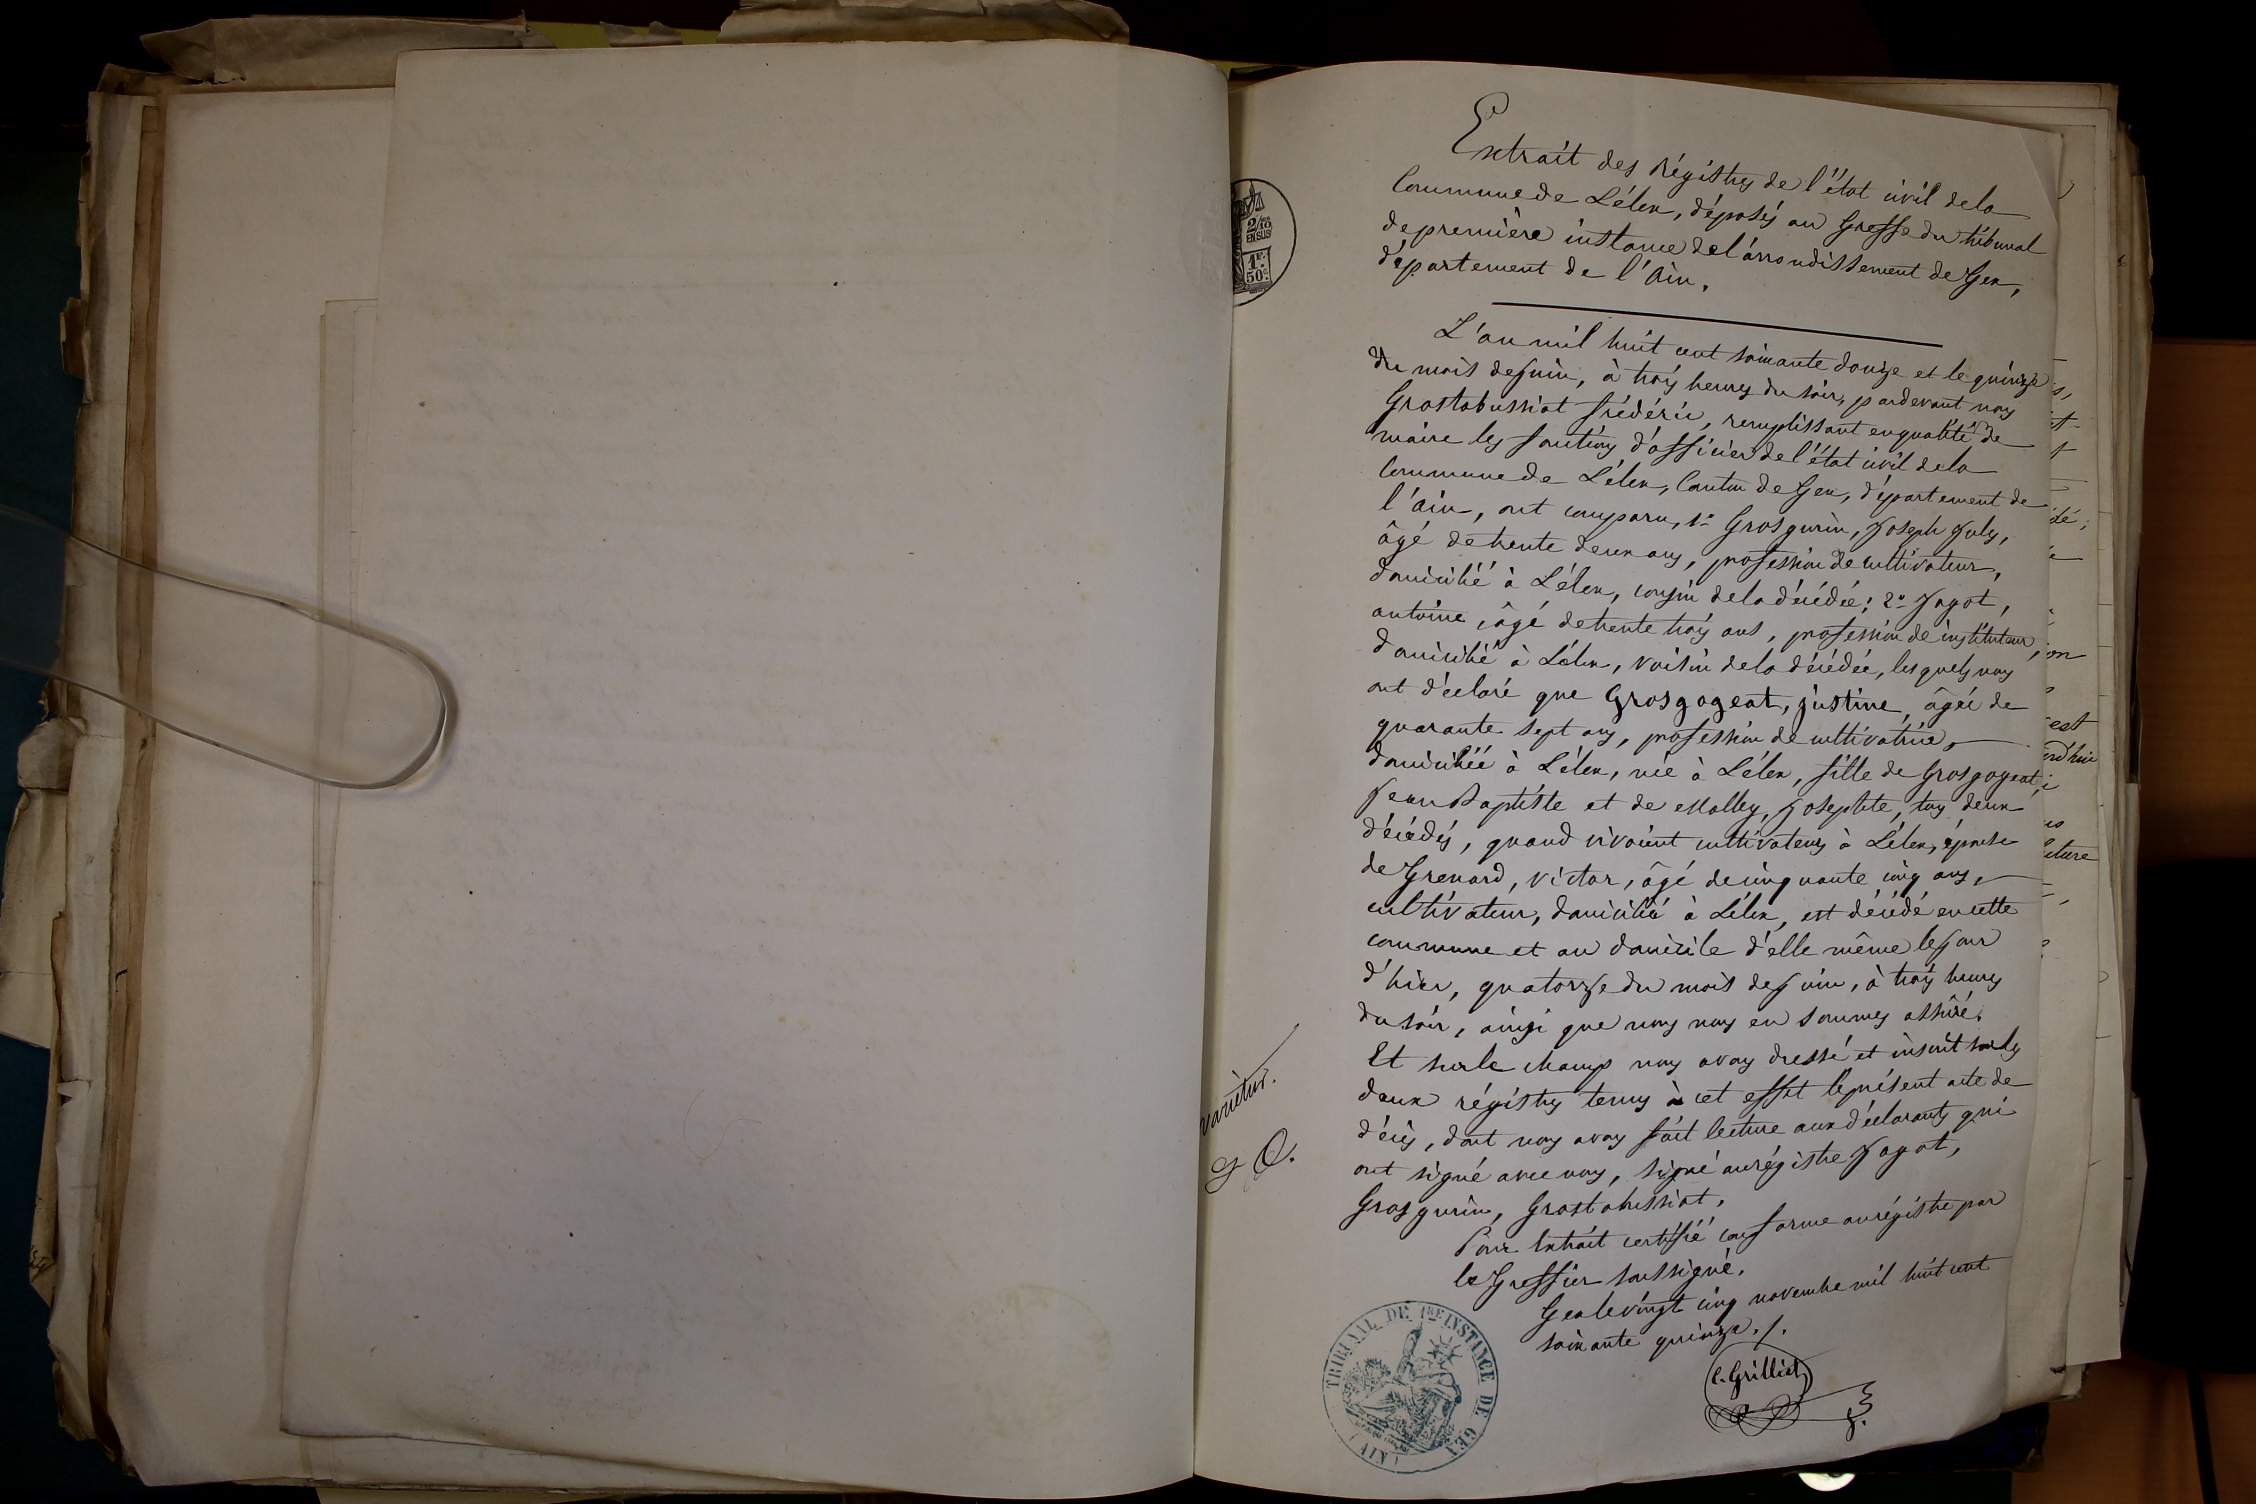 Extrait des régistres de l'état civil de la
Commune de Lélex, déposés au Greffe du tribunal
de première instance de l'arrondissement de Gex,
département de l'Ain.
2/10
EN SUS
1F.
50c.
L'an mil huit cent soixante douze et le quinze
du mois de juin, à trois heures du soir, pardevant nous
Grostabussiat frédéric, remplissant en qualité de
maire les fonctions d'officier de l'état civil de la
Commune de Lélex, Canton de Gex, département de
l'Ain, ont comparu, 1° Grosgurin, Joseph Jules,
âgé de trente deux ans, profession de cultivateur,
domicilié à Lélex, cousin de la décédée; 2° Jagot,
antoine, âgé de trente trois ans, profession de instituteur,
domicilié à Lélex, voisin de la décédée, lesquels nous
ont déclaré que Grosgogeat, justine, âgée de
quarante sept ans, profession de cultivatrice,
domiciliée à Lélex, née à Lélex, fille de Grosgogeat,
Jean Baptiste et de Molley, Josephte, tous deux
décédés, quand vivaient cultivateurs à Lélex, épouse
de Grenard, victor, âgé de cinquante cinq ans,
cultivateur, domicilié à Lélex, est décédé en cette
commune et au domicile d'elle même le jour
d'hier, quatorze du mois de juin, à trois heures
du soir, ainsi que nous nous en sommes assuré.
Et sur le champ nous avons dressé et inscrit sur les
deux régistres tenus à cet effet le présent acte de
décès, dont nous avons fait lecture aux déclarants qui
ont signé avec nous, signé au régistre Jagot,
Grosgurin, Grostabussiat.
Pour Extrait certifié conforme au régistre par
le Greffier soussigné.
Gex le vingt cinq novembre mil huit cent
soixante quinze ./.
C. Grilliet
varietur.
TRIBUNAL DE 1RE INSTANCE DE GEX
(AIN)